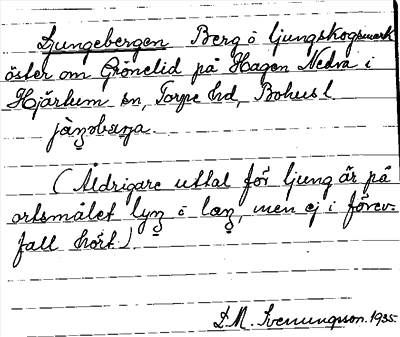 Ljungebergen Berg å ljungskogsmark
öster om Grönelid på Hagen Nedra i
Hjärtum sn, Torpe hd, Bohusl.
(Åldrigare uttal för ljung är på
ortsmålet lyŋ å lœŋ, men ej i förev-
fall hört.)
D.M. Svenungsson. 1935.